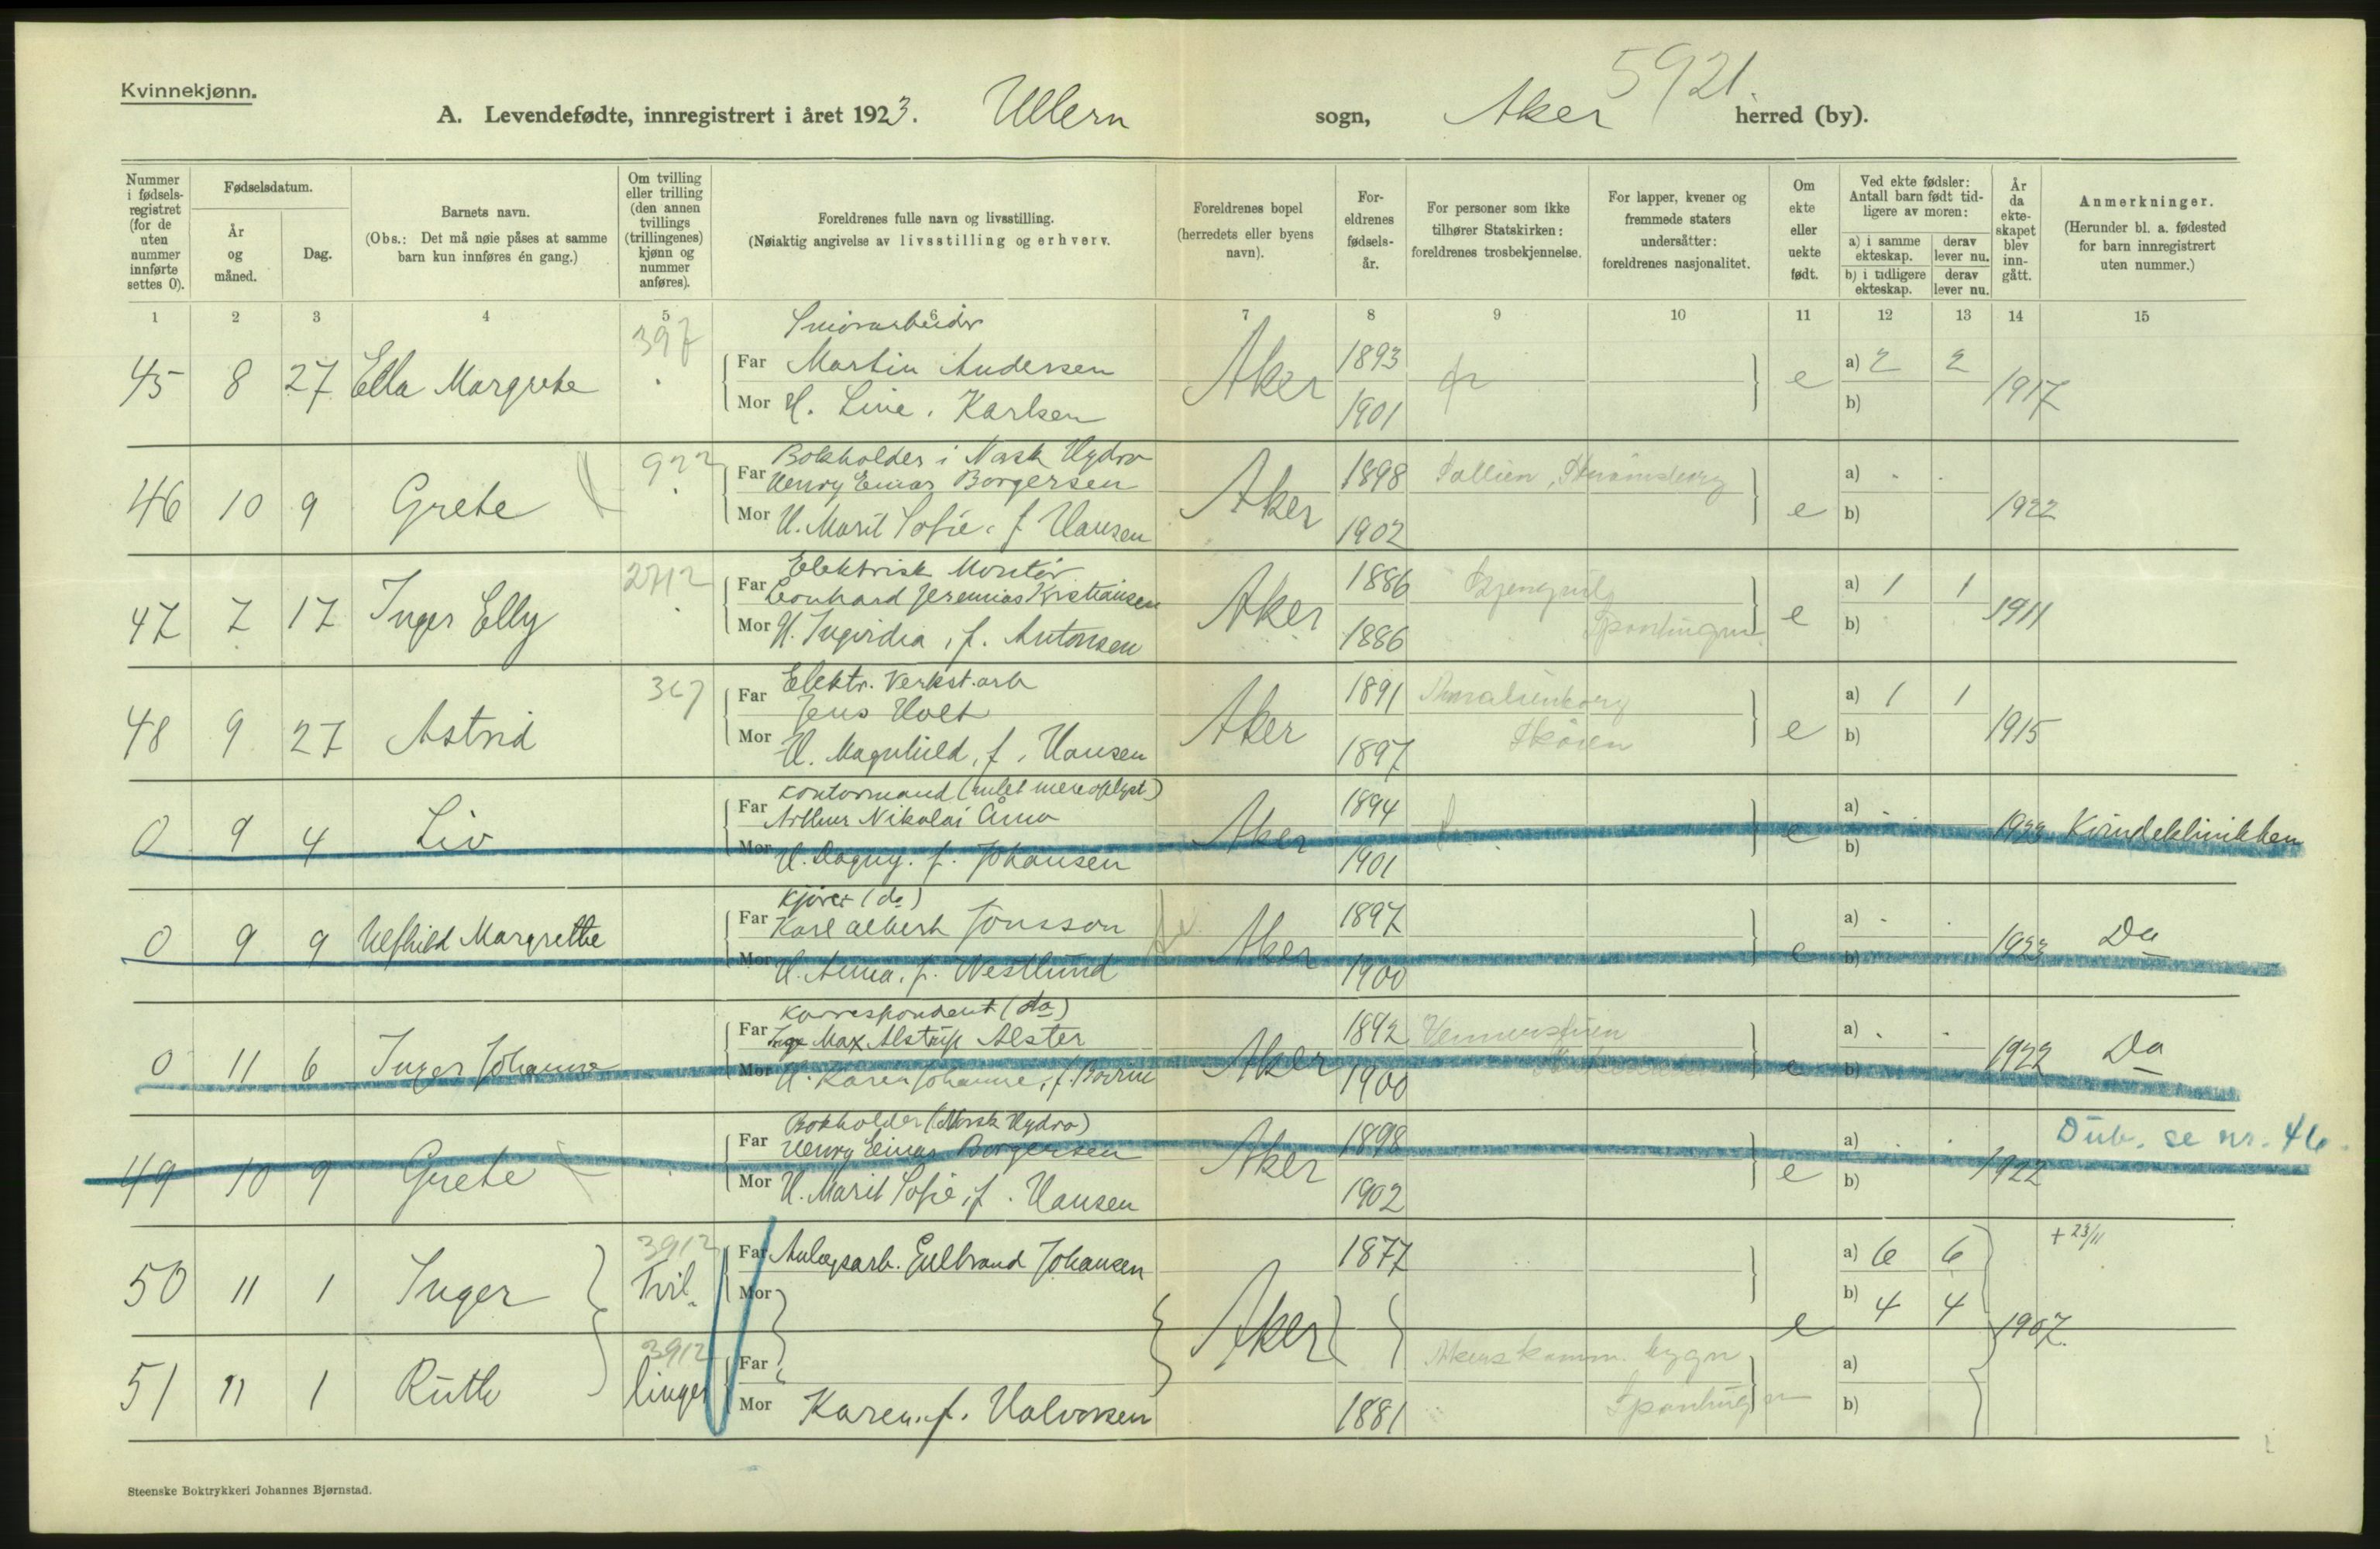 5921.
Kvinnekjønn.
A. Levendefødte, innregistrert i året 1923. Ullern sogn, Aker herred (by).
Nummer i fødsels-registret (for de uten nummer innførte settes 0).
Fødselsdatum.
År og måned.
Dag.
Barnets navn.
(Obs.: Det må nøie påses at samme barn kun innføres én gang.)
Om tvilling eller trilling (den annen tvillings (trillingenes) kjønn og nummer anføres).
Foreldrenes fulle navn og livsstilling.
(Nøiaktig angivelse av livsstilling og erhverv.
Foreldrenes bopel (herredets eller byens navn).
For-eldrenes fødsels-år.
For personer som ikke tilhører Statskirken: foreldrenes trosbekjennelse.
For lapper, kvener og fremmede staters undersåtter: foreldrenes nasjonalitet.
Om ekte eller uekte født.
Ved ekte fødsler: Antall barn født tid-ligere av moren:
a) i samme ekteskap.
derav lever nu.
b) i tidligere ekteskap.
derav lever nu.
År da ekte-skapet blev inn-gått.
Anmerkninger.
(Herunder bl. a. fødested for barn innregistrert uten nummer.)
1 2 3 4 5 6 7 8 9 10 11 12 13 14 15
397
45 8 27 Ella Margrete
Far Martin Andersen Aker 1893 e a) 2 2 1917
Mor H. Line. Karlsen 1901 b)
922
Bokholder i Norsk Hydro
46 10 9 Grete
Far Henry Einar Borgersen Aker 1898 e a) . . 1922
Mor H. Marit Sofie. f. Hansen 1902 b)
2712
Elektrisk Montør
47 7 17 Inger Elly
Far Leonhard Jeremias Kristiansen Aker 1886 e a) 1 1 1911
Mor H. Ingvidia, f. Antonsen 1886 b)
367
Elektr. Verkst.arb
48 9 27 Astrid
Far Jens Holt Aker 1891 Amalienborg e a) 1 1 1915
Mor H. Magnhild, f. Hansen 1897 Skøien b)
Kontormand (intet mere oplyst)
0 9 4 Liv
Far Arthur Nikolai Aker 1894 e a) . . 1923 Kvindeklinikken
Mor H. Dagny. f. Johansen 1901 b)
Kjører (do)
0 9 9 Ulfhild Margrethe
Far Karl Albert Jonsson Aker 1897 e a) . . 1923 Do
Mor H. Anna. f. Westlund 1900 b)
Korrespondent (do)
0 11 6 Inger Johanne
Far Max Alstrup Alster Aker 1892 e a) . . 1922 Do
Mor H. Karen Johanne, f. 1900 b)
Bokholder (Norsk Hydro)
49 10 9 Grete
Far Henry Einar Borgersen Aker 1898 e a) . . 1922 Dub. se nr. 46
Mor H. Marit Sofie, f. Hansen 1902 b)
3912
50 11 1 Inger Tvil-
Far Anlegsarb. Gulbrand Johansen Aker 1877 e a) 6 6 1907. + 23/11
Mor b) 4 4
3912
51 11 1 Ruth linger
Far a)
Mor Karen. f. Halvorsen 1881 b)
Steenske Boktrykkeri Johannes Bjørnstad.